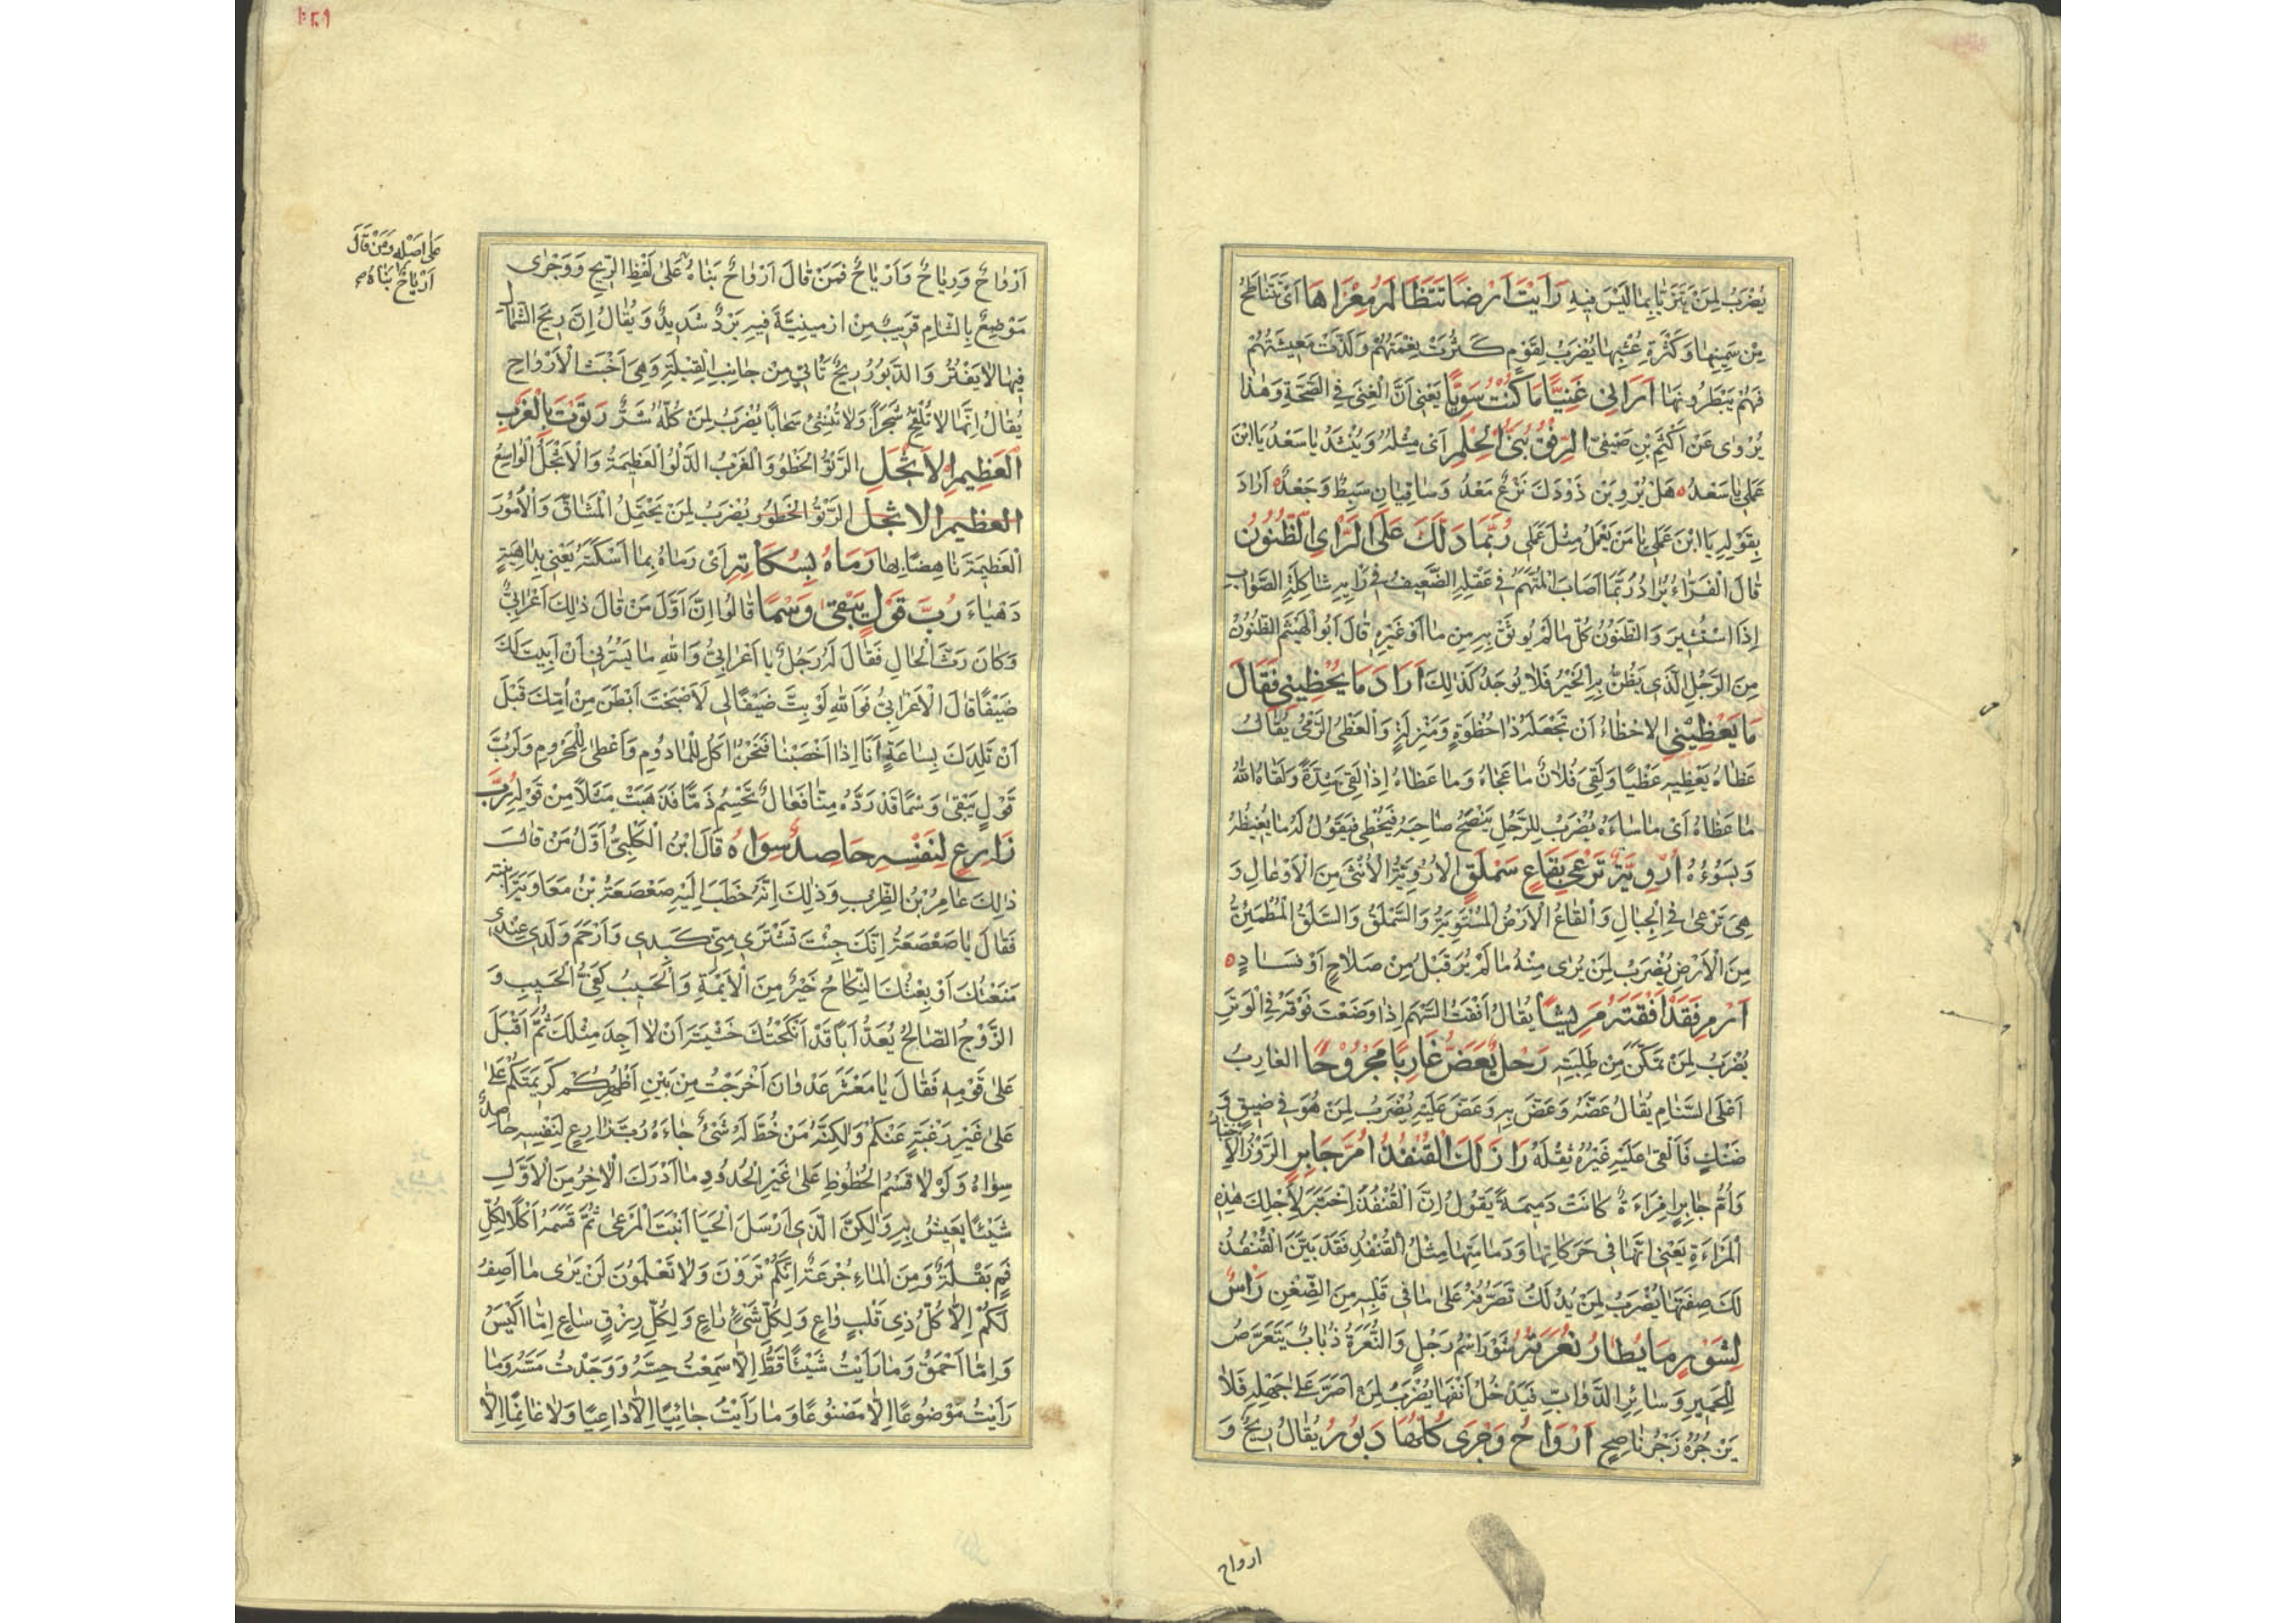 يُضْرَبُ لِمَنْ تَزَيَّا بِمَا لَيْسَ فِيهِ رَأَيْتُ أَرْضًا تَتَظَالَمُ مِعْزَاهَا أَيْ تَتَنَاطَحُ
مِنْ سَمِنِهَا وَكَثْرَةِ عُشْبِهَا يُضْرَبُ لِقَوْمٍ كَثُرَتْ نِعْمَتُهُمْ وَلَذَّتْ مَعِيشَتُهُمْ
فَهُمْ يَبْطَرُونَهَا أَرَانِي غَنِيًّا مَا كُنْتُ سَوِيًّا يَعْنِي أَنَّ الْغِنَى فِي الصِّحَّةِ وَهٰذَا
يُرْوٰى عَنْ أَكْثَمَ بْنِ صَيْفِيٍّ الرِّفْقُ بُنَيُّ الْحِلْمِ أَيْ مِثْلُهُ وَيُنْشَدُ يَا سَعْدُ يَا ابْنَ
عَمَلِي يَا سَعْدُ هَلْ يُرْوِيَنْ ذَوْدَكَ نَزْعٌ مَعْدٌ وَسَاقِيَانِ سَبِطٌ وَجَعْدٌ أَرَادَ
بِقَوْلِهِ يَا ابْنَ عَمَلِي يَا مَنْ يَعْمَلُ مِثْلَ عَمَلِي رُبَّمَا دَلَّكَ عَلَى الرَّأْيِ الظَّنُونُ
قَالَ الْفَرَّاءُ يُرَادُ رُبَّمَا أَصَابَ الْمُتَّهَمُ فِي عَقْلِهِ الضَّعِيفُ فِي رَأْيِهِ شَاكِلَةَ الصَّوَابِ
إِذَا اسْتُشِيرَ وَالظَّنُونُ كُلُّ مَا لَمْ يُوثَقْ بِهِ مِنْ مَاءٍ أَوْ غَيْرِهِ قَالَ أَبُو الْهَيْثَمِ الظَّنُونُ
مِنَ الرَّجُلِ الَّذِي يُظَنُّ بِهِ الْخَيْرُ فَلَا يُوجَدُ كَذٰلِكَ أَرَادَ مَا يُحْظِينِي فَقَالَ
مَا يَعْظِينِي الْإِحْظَاءُ أَنْ تَجْعَلَهُ ذَا حُظْوَةٍ وَمَنْزِلَةٍ وَالْعَظْيُ الرَّمْيُ يُقَالُ
عَظَاهُ يَعْظِيهِ عَظْيًا وَلَقِيَ فُلَانٌ مَا عَجَاهُ وَمَا عَظَاهُ إِذَا لَقِيَ شِدَّةً وَلَقَاهُ اللّٰهُ
مَا عَظَاهُ أَيْ مَا سَاءَهُ يُضْرَبُ لِلرَّجُلِ يَنْصَحُ صَاحِبَهُ فَيُخْطِئُ فَيَقُولُ لَهُ مَا يُغِيظُهُ
وَيَسُوءُهُ أُرْوِيَّةٌ تَرْعٰى بِقَاعٍ سَمْلَقٍ الْأُرْوِيَّةُ الْأُنْثٰى مِنَ الْأَوْعَالِ وَ
هِيَ تَرْعٰى فِي الْجِبَالِ وَالْقَاعُ الْأَرْضُ الْمُسْتَوِيَةُ وَالسَّمْلَقُ وَالسَّلَقُ الْمُطْمَئِنُّ
مِنَ الْأَرْضِ يُضْرَبُ لِمَنْ يُرٰى مِنْهُ مَا لَمْ يُرَ قَبْلُ مِنْ صَلَاحٍ أَوْ فَسَادٍ
ارْمِ فَقَدْ أَفْقَتَهُ مَرِيشًا يُقَالُ أَفَقْتُ السَّهْمَ إِذَا وَضَعْتَ فُوقَهُ فِي الْوَتَرِ
يُضْرَبُ لِمَنْ تَمَكَّنَ مِنْ طَلِبَتِهِ رَحْلٌ يَعَضُّ غَارِبًا مَجْرُوحًا الْغَارِبُ
أَعْلَى السَّنَامِ يُقَالُ عَضَّهُ وَعَضَّ بِهِ وَعَضَّ عَلَيْهِ يُضْرَبُ لِمَنْ هُوَ فِي ضِيقٍ وَ
ضَنْكٍ فَأَلْقٰى عَلَيْهِ غَيْرُهُ ثِقْلَهُ رَازَ لَكَ الْقُنْفُذُ أُمَّ جَابِرٍ الرَّوْزُ الْاِخْتِبَارُ
وَأُمُّ جَابِرٍ امْرَاءَةٌ كَانَتْ دَمِيمَةً يَقُولُ إِنَّ الْقُنْفُذَ اخْتَبَرَ لِأَجْلِكَ هٰذِهِ
الْمَرْاءَةَ يَعْنِي أَنَّهَا فِي حَرَكَاتِهَا وَدَمَامَتِهَا مِثْلُ الْقُنْفُذِ فَقَدْ بَيَّنَ الْقُنْفُذُ
لَكَ صِفَتَهَا يُضْرَبُ لِمَنْ يَدُلُّكَ تَصَرُّفُهُ عَلٰى مَا فِي قَلْبِهِ مِنَ الضِّغْنِ رَأْسٌ
لِشَوْرٍ مَا يُطَارُ نُعَرَتُهُ شَوْرٌ اسْمُ رَجُلٍ وَالنُّعَرَةُ ذُبَابٌ يَتَعَرَّضُ
لِلْحَمِيرِ وَسَائِرِ الدَّوَابِّ فَيَدْخُلُ أَنْفَهَا يُضْرَبُ لِمَنْ أَصَرَّ عَلٰى جَهْلِهِ فَلَا
يَزْجُرُهُ زَجْرُ نَاصِحٍ أَرْوَاحُ وَجْرٰى كُلُّهَا دَبُورُ يُقَالُ رِيحٌ وَ
ارواح
أَرْوَاحٌ وَرِيَاحٌ وَأَرْيَاحٌ فَمَنْ قَالَ أَرْوَاحٌ بَنَاهُ عَلٰى لَفْظِ الرِّيحِ وَوَجْرٰى
عَلٰى أَصْلِهِ وَمَنْ قَالَ
أَرْيَاحٌ بَنَاهُ
مَوْضِعٌ بِالشَّامِ قَرِيبٌ مِنْ ارْمِينِيَّةَ فِيهِ بَرْدٌ شَدِيدٌ وَيُقَالُ إِنَّ رِيحَ الشَّمَالِ
فِيهَا لَا يَفْتُرُ وَالدَّبُورُ رِيحٌ تَأْتِي مِنْ جَانِبِ الْقِبْلَةِ وَهِيَ أَخْبَثُ الْأَرْوَاحِ
يُقَالُ إِنَّهَا لَا تُلْقِحُ شَجَرًا وَلَا تُنْشِئُ سَحَابًا يُضْرَبُ لِمَنْ كُلُّهُ شَرٌّ رَتَوْتَ بِالْغَرْبِ
الْعَظِيمِ الْأَثْجَلِ الرَّتْوُ الْخَطْوُ وَالْغَرْبُ الدَّلْوُ الْعَظِيمَةُ وَالْأَثْجَلُ الْوَاسِعُ
العظيم الاثجل الرَّتْوُ الْخَطْوُ يُضْرَبُ لِمَنْ يَحْتَمِلُ الْمَشَاقَّ وَالْأُمُورَ
الْعَظِيمَةَ نَاهِضًا بِهَا رَمَاهُ بِسُكَاتِهِ أَيْ رَمَاهُ بِمَا أَسْكَتَهُ يَعْنِي بِدَاهِيَةٍ
دَهْيَاءَ رُبَّ قَوْلٍ يُبْقِي وَسْمًا قَالُوا إِنَّ أَوَّلَ مَنْ قَالَ ذٰلِكَ أَعْرَابِيٌّ
وَكَانَ رَثَّ الْحَالِ فَقَالَ لَهُ رَجُلٌ يَا أَعْرَابِيُّ وَاللّٰهِ مَا يَسُرُّنِي أَنْ أَبِيتَ لَكَ
ضَيْفًا قَالَ الْأَعْرَابِيُّ فَوَاللّٰهِ لَوْ بِتَّ ضَيْفًا لِي لَأَصْبَحْتَ أَبْطَنَ مِنْ أُمِّكَ قَبْلَ
أَنْ تَلِدَكَ بِسَاعَةٍ أَنَا إِذَا أَخْصَبْنَا فَنَحْنُ آكَلُ لِلْمَادُومِ وَأَعْطٰى لِلْمَحْرُومِ وَلَرُبَّ
قَوْلٍ يُبْقِي وَسْمًا قَدْ رَدَّهُ مِنَّا فَعَالٌ تَحْسِمُ ذَمًّا فَذَهَبَتْ مَثَلًا مِنْ قَوْلِهِ رُبَّ
زَارِعٍ لِنَفْسِهِ حَاصِدٌ سِوَاهُ قَالَ ابْنُ الْكَلْبِيِّ أَوَّلُ مَنْ قَالَ
ذٰلِكَ عَامِرُ بْنُ الظَّرِبِ وَذٰلِكَ أَنَّهُ خَطَبَ إِلَيْهِ صَعْصَعَةُ بْنُ مُعَاوِيَةَ ابْنَتَهُ
فَقَالَ يَا صَعْصَعَةُ إِنَّكَ جِئْتَ تَشْتَرِي مِنِّي كَبِدِي وَأَرْحَمَ وَلَدِي عِنْدِي
مَنَعْتُكَ أَوْ بِعْتُكَ النِّكَاحُ خَيْرٌ مِنَ الْأَيْمَةِ وَالْحَسِيبُ كُفْءُ الْحَسِيبِ وَ
الزَّوْجُ الصَّالِحُ يُعَدُّ أَبًا قَدْ أَنْكَحْتُكَ خَشْيَةَ أَنْ لَا أَجِدَ مِثْلَكَ ثُمَّ أَقْبَلَ
عَلٰى قَوْمِهِ فَقَالَ يَا مَعْشَرَ عَدْوَانَ أَخْرَجْتُ مِنْ بَيْنِ أَظْهُرِكُمْ كَرِيمَتَكُمْ عَلٰى
عَلٰى غَيْرِ رَغْبَةٍ عَنْكُمْ وَلٰكِنَّهُ مَنْ خُطَّ لَهُ شَيْءٌ جَاءَهُ رُبَّ زَارِعٍ لِنَفْسِهِ حَاصِدٌ
سِوَاهُ وَلَوْلَا قَسْمُ الْحُظُوظِ عَلٰى غَيْرِ الْحُدُودِ مَا أَدْرَكَ الْآخِرُ مِنَ الْأَوَّلِ
شَيْئًا يَعِيشُ بِهِ وَلٰكِنَّ الَّذِي أَرْسَلَ الْحَيَا أَنْبَتَ الْمَرْعٰى ثُمَّ قَسَمَهُ أُكُلًا لِكُلِّ
فَمٍ بَقْلَةٌ وَمِنَ الْمَاءِ جُرْعَةٌ إِنَّكُمْ تَرَوْنَ وَلَا تَعْلَمُونَ لَنْ يَرٰى مَا أَصِفُ
لَكُمْ إِلَّا كُلُّ ذِي قَلْبٍ وَاعٍ وَلِكُلِّ شَيْءٍ رَاعٍ وَلِكُلِّ رِزْقٍ سَاعٍ إِمَّا أَكْيَسُ
وَإِمَّا أَحْمَقُ وَمَا رَأَيْتُ شَيْئًا قَطُّ إِلَّا سَمِعْتُ حِسَّهُ وَوَجَدْتُ مَسَّهُ وَمَا
رَأَيْتُ مَوْضُوعًا إِلَّا مَصْنُوعًا وَمَا رَأَيْتُ جَائِيًا إِلَّا دَاعِيًا وَلَا غَانِمًا إِلَّا